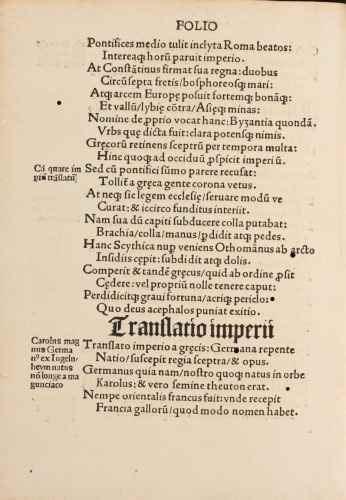 FOLIO
Pontifices medio tulit inclyta Roma beatos:
Intereaq; horũ paruit imperio.
At Cõstãtinus firmat sua regna: duobus
Circũsepta fretis/bosphoreoq; mari:
Atq; arcem Europę posuit fortemq; bonãq;
Et vallũ/lybię cõtra/Asięq; minas:
Nomine de ꝓprio vocat hanc: Byzantia quondã.
Vrbs quę dicta fuit: clara potensq; nimis.
Gręcorũ retinens sceptrũ per tempora multa:
Hinc quoq; ad occiduũ ꝓspicit imperiũ.
Cã quare im
perii trãslatũ
Sed cũ pontifici sũmo parere recusat:
Tollitr̃ a gręca gente corona vetus.
At neq; sic legem ecclesię/seruare modũ ve
Curat: & iccirco funditus interiit.
Nam sua dũ capiti subducere colla putabat:
Brachia/colla/manus/ꝑdidit atq; pedes.
Hanc Scythica nup̱ veniens Othomãnus ab arcto
Insidiis cępit: subdidit atq; dolis.
Comperit & tandẽ gręcus/quid ab ordine ꝓsit
Cędere: vel propriũ nolle tenere caput:
Perdidicitq; graui fortuna/acriq; periclo:
Quo deus acephalos puniat exitio.
Translatio imperii
Carolus mag
nus Germa
nꝰ ex Ingeln/
heym natus
nõ longe a ma
gunciaco
Translato imperio a gręcis: Germana repente
Natio/suscepit regia sceptra/& opus.
Germanus quia nam/nostro quoq; natus in orbe
Karolus: & vero semine theuton erat.
Nempe orientalis francus fuit: vnde recepit
Francia gallorũ/quod modo nomen habet.